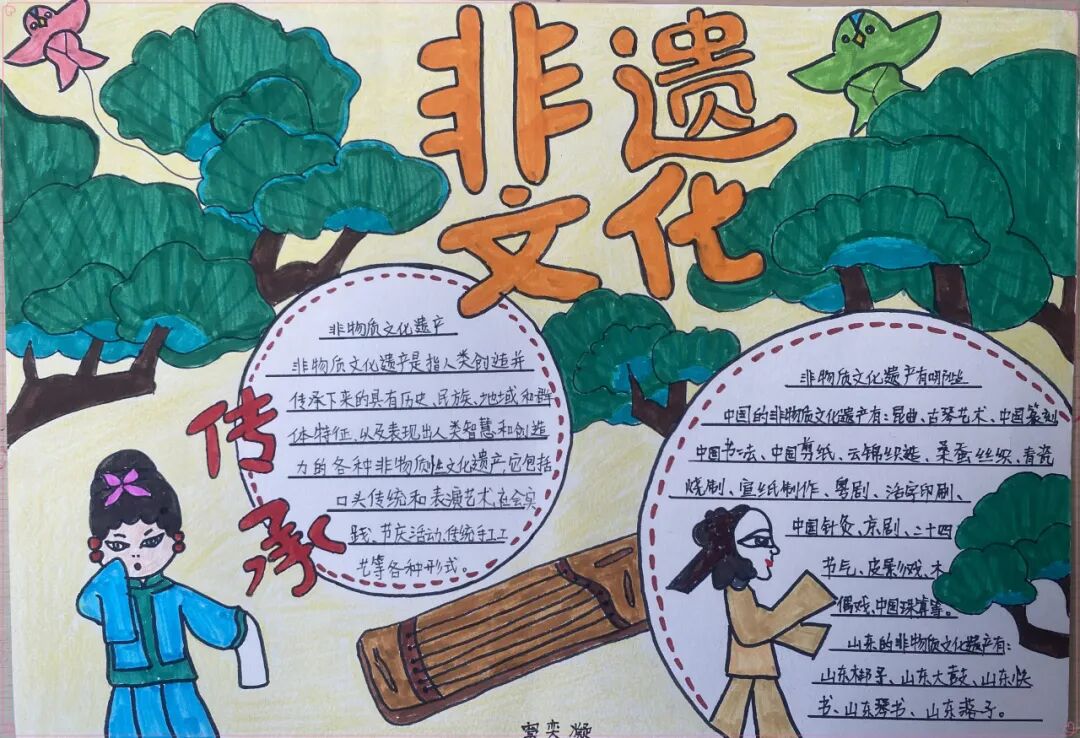 非遗
文化
传承
非物质文化遗产
非物质文化遗产是指人类创造并
传承下来的具有历史、民族、地域和群
体特征,以及表现出人类智慧和创造
力的各种非物质性文化遗产,它包括
口头传统和表演艺术,社会实
践、节庆活动,传统手工工
艺等各种形式。
非物质文化遗产有哪些
中国的非物质文化遗产有:昆曲、古琴艺术、中国篆刻、
中国书法、中国剪纸、云锦织造、桑蚕丝织、青瓷
烧制、宣纸制作、粤剧、活字印刷、
中国针灸、京剧、二十四
节气、皮影戏、木
偶戏、中国珠算等。
山东的非物质文化遗产有:
山东梆子、山东大鼓、山东快
书、山东琴书、山东落子。
奕凝